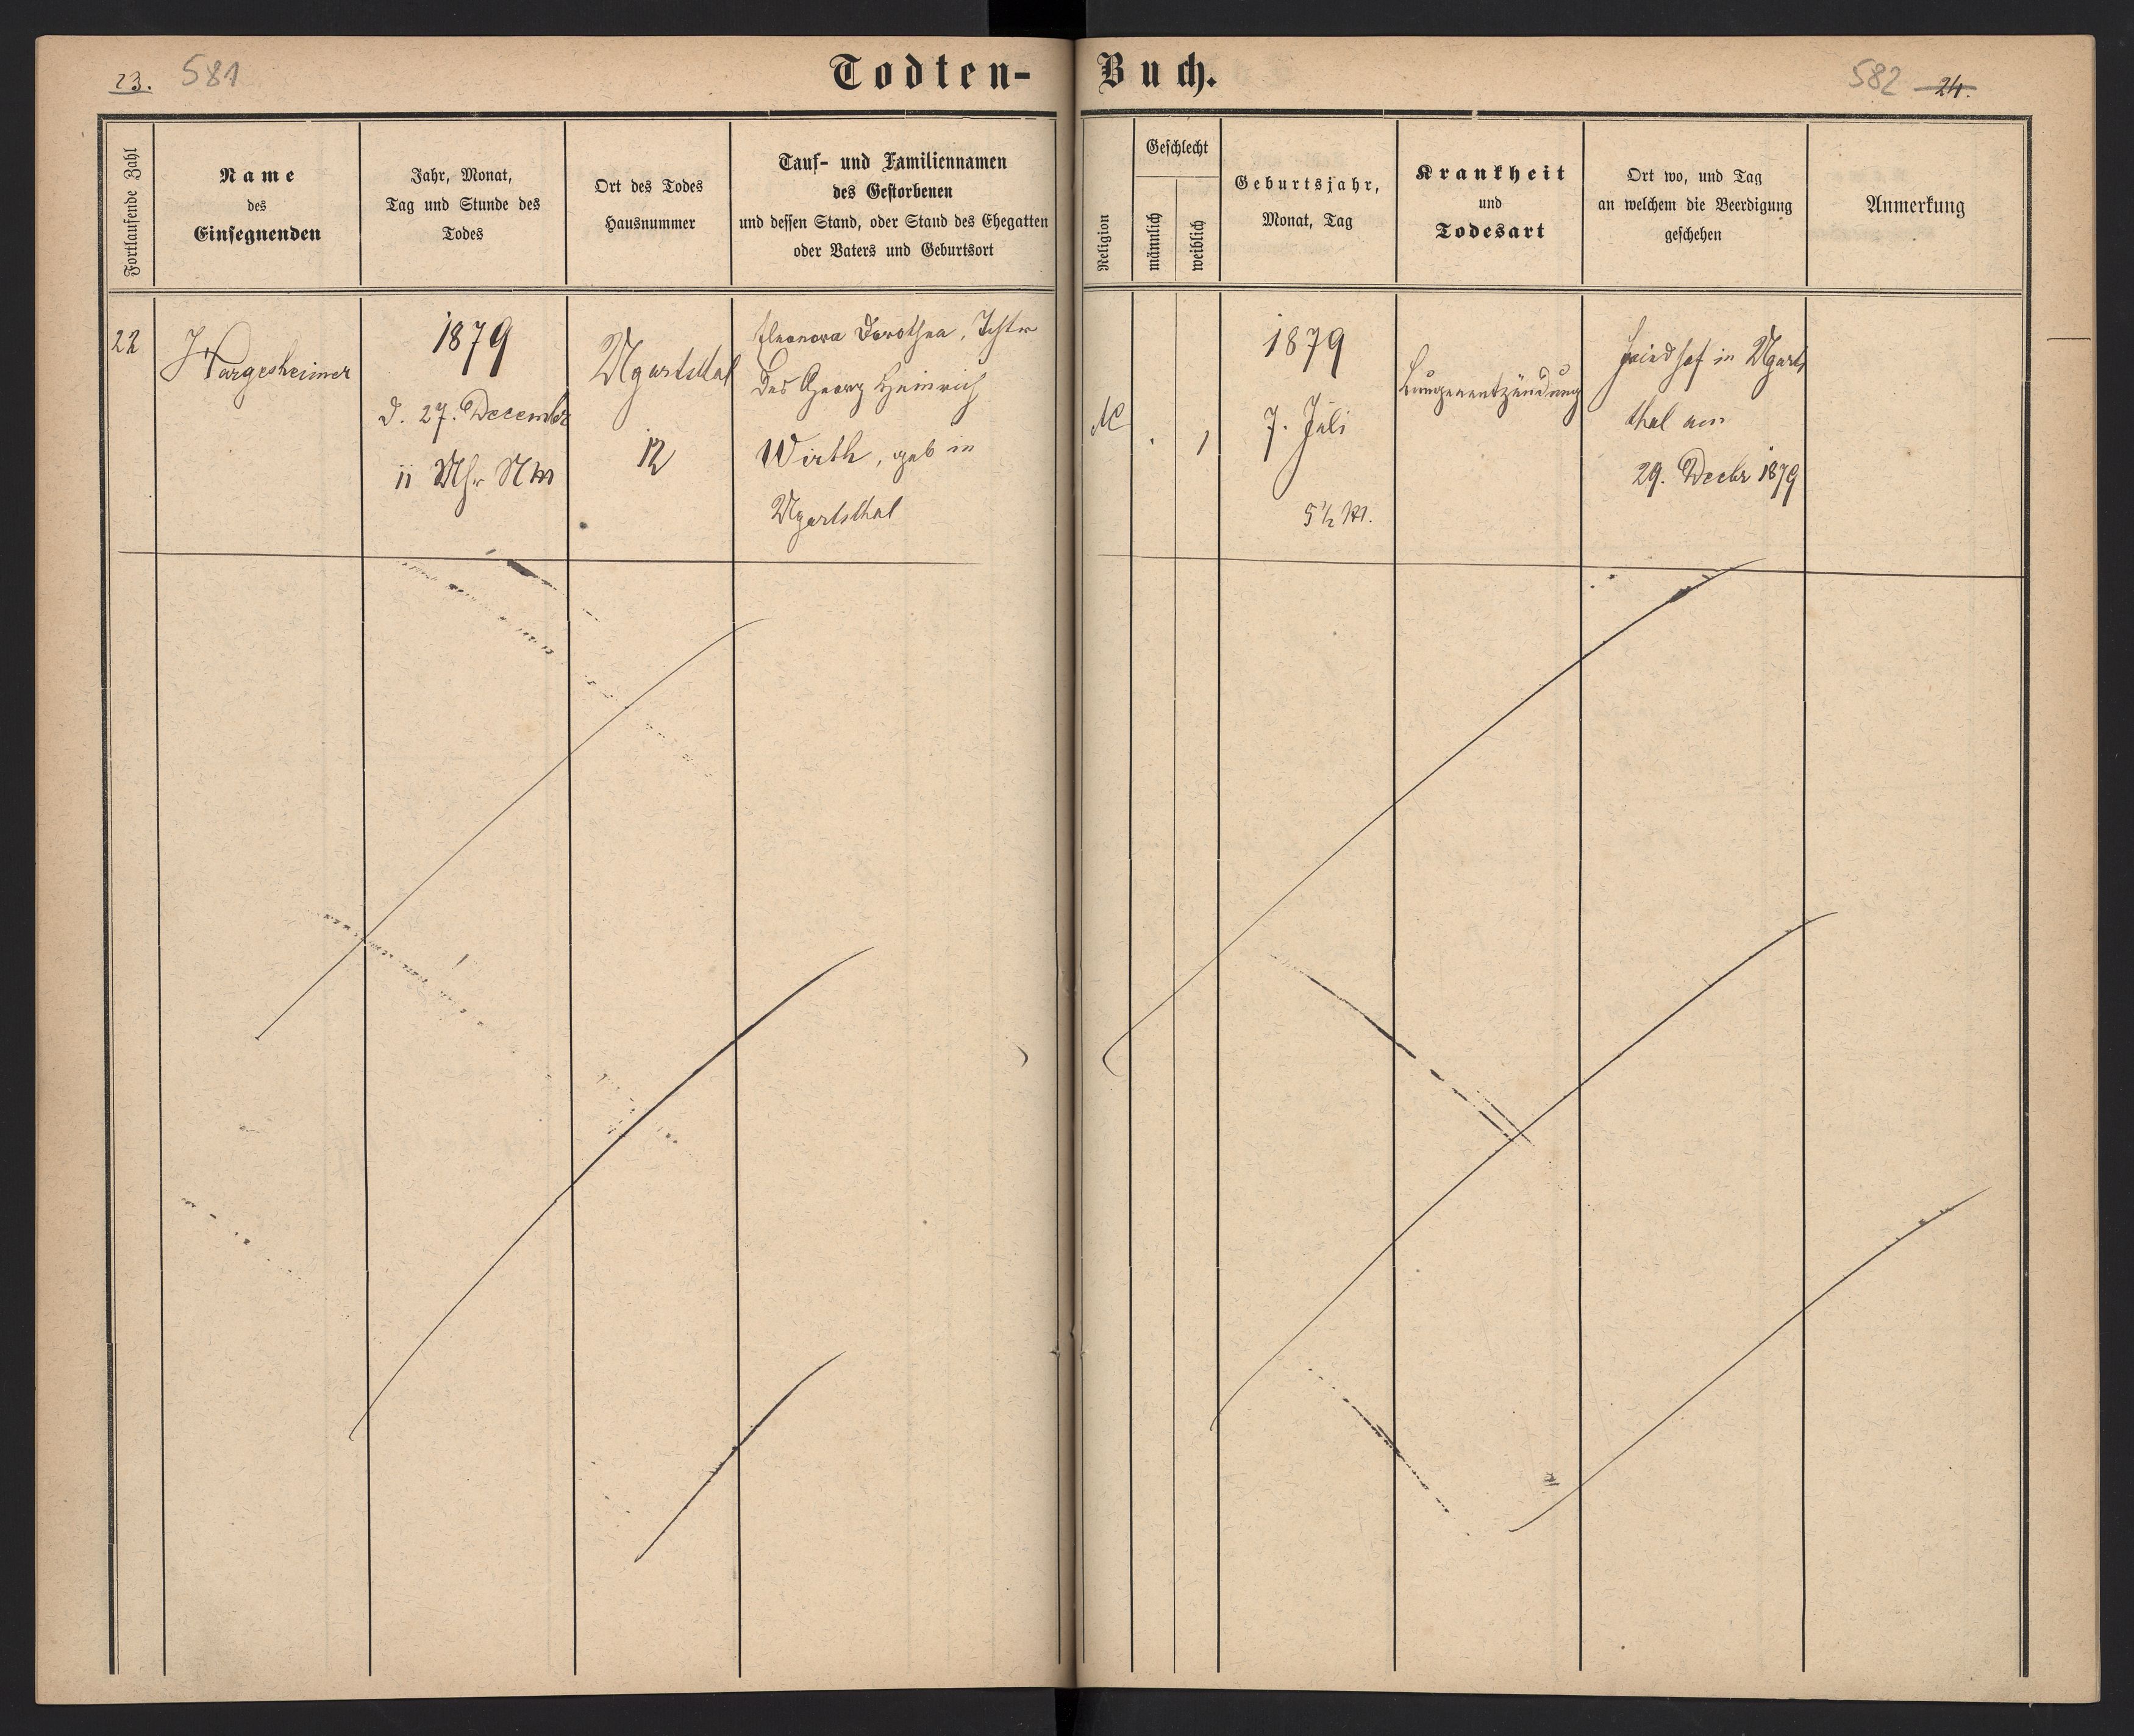 23. 581
Todten-Buch.
582 24.
Fortlaufende Zahl
Name
des
Einsegnenden
Jahr, Monat,
Tag und Stunde des
Todes
Ort des Todes
Hausnummer
Tauf- und Familiennamen
des Gestorbenen
und dessen Stand, oder Stand des Ehegatten
oder Vaters und Geburtsort
Religion
Geschlecht
männlich
weiblich
Geburtsjahr,
Monat, Tag
Krankheit
und
Todesart
Ort wo, und Tag
an welchem die Beerdigung
geschehen
Anmerkung
22
Hargesheimer
1879
d. 27. December
11 Uhr Nm
Ugartsthal
12
Eleonora Dorothea, Tchter
des Georg Heinrich
Wirth, geb in
Ugartsthal
1
1879
7. Juli
5 1/2 M.
Lungenentzündung
Friedhof in Ugarts
thal am
29. Decbr 1879